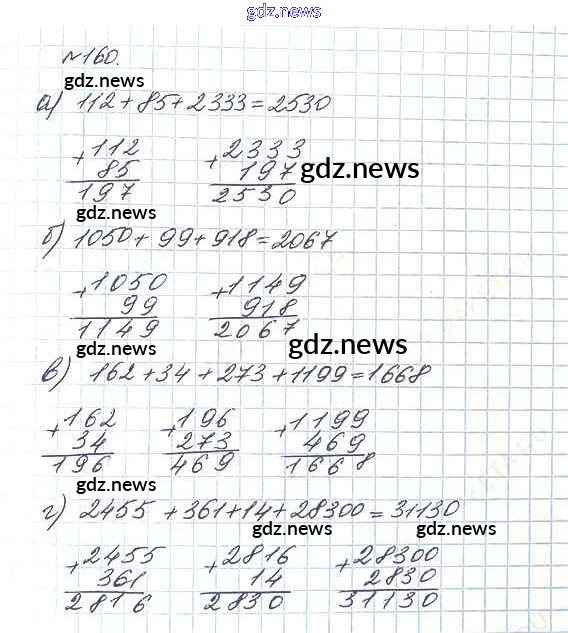 gdz.news
№160.
gdz.news
а) 112+85+2333=2530
+112 +2333
85 197 gdz.news
197 2530
gdz.news
б) 1050+99+918=2067
+1050 +1149
99 918
1149 2067
gdz.news gdz.news
в) 162+34+273+1199=1668
+162 +196 +1199
34 273 469
196 469 1668
gdz.news
г) 2455+361+14+28300=31130
gdz.news gdz.news
+2455 +2816 +28300
361 14 2830
2816 2830 31130